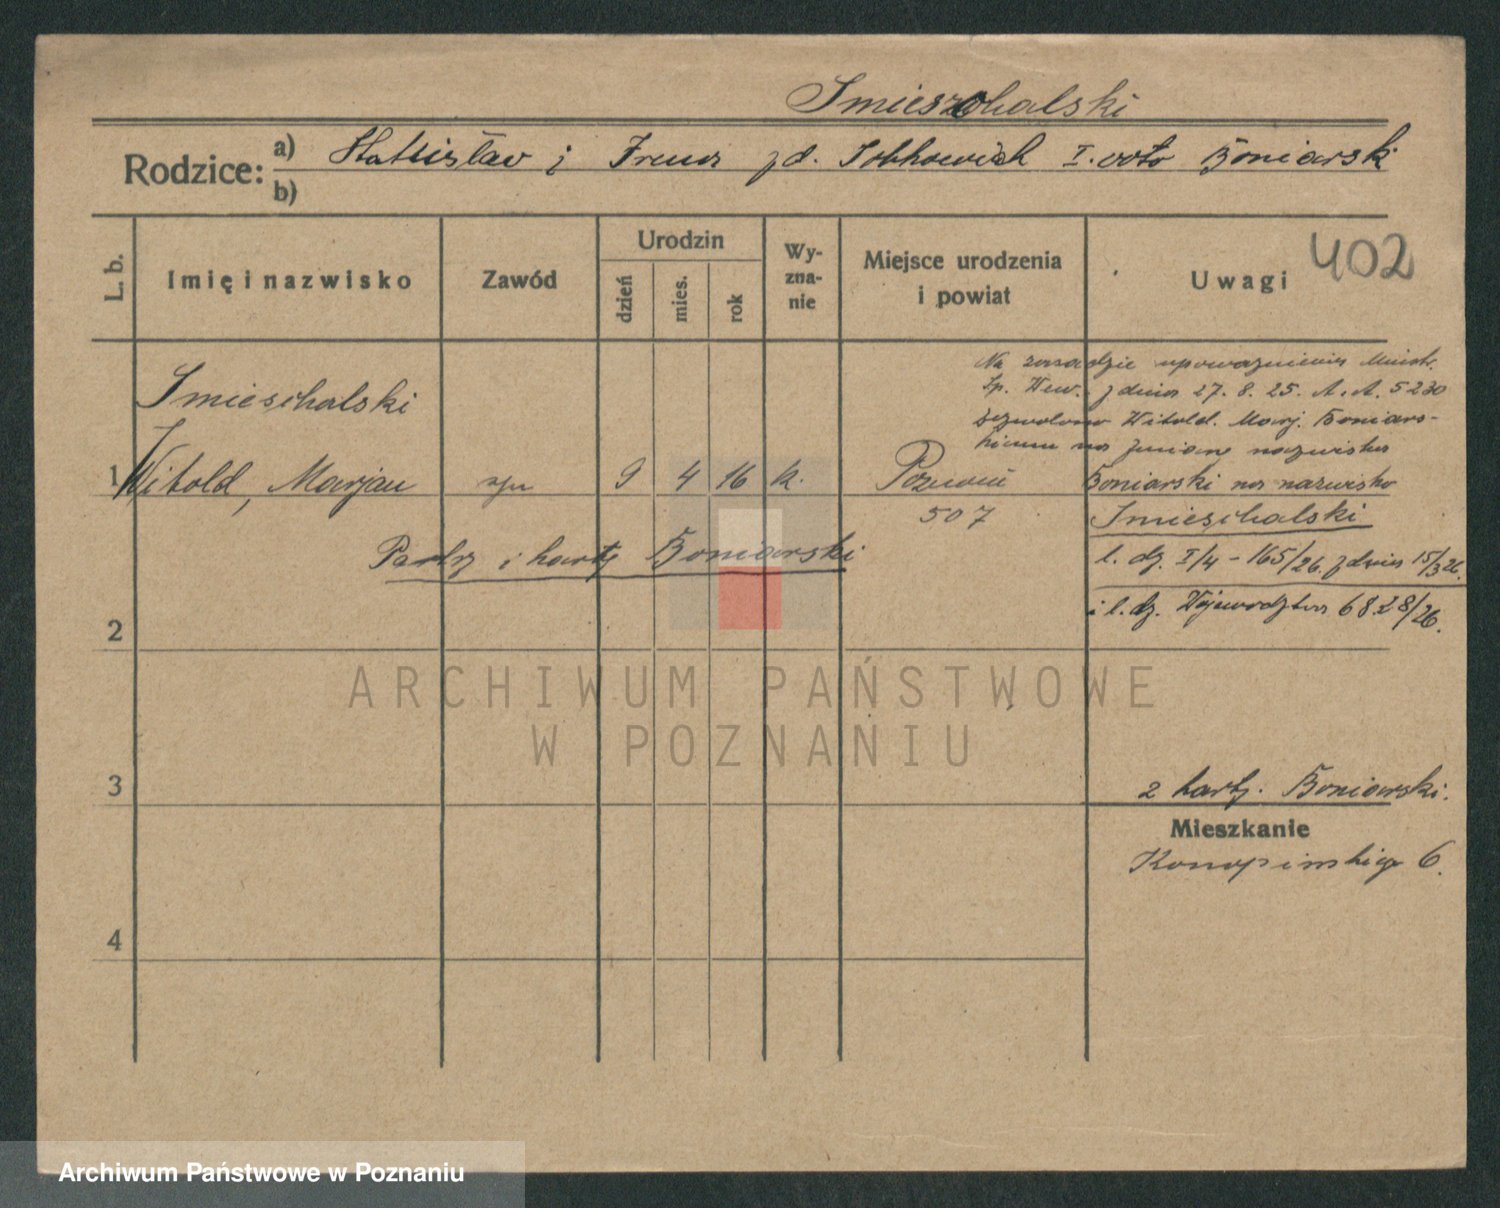 Smieszchalski
Rodzice: a) Stanisław i Irena zd. I. voto Boniarski
b)
L. b. Imię i nazwisko Zawód Urodzin dzień mies. rok Wyznanie Miejsce urodzenia i powiat Uwagi 402
Na zasadzie upoważnienia Minist.
Sp. Wew. z dnia 27. 8. 25. A. A. 5230
Smieschalski
zezwolono Witold. Marj. Boniars-
kiemu na zmianę nazwiska
1 Witold, Marjan syn 9 4 16 k. Poznań Boniarski na nazwisko
507 Smieschalski
Patrz i karty Boniarski l. dz. I/4 - 165/26. z dnia 15/3 26.
i l. dz. Wojewodztwa 6828/26.
2
ARCHIWUM PAŃSTWOWE
W POZNANIU
3 2 karty. Boniarski.
Mieszkanie
6.
4
Archiwum Państwowe w Poznaniu